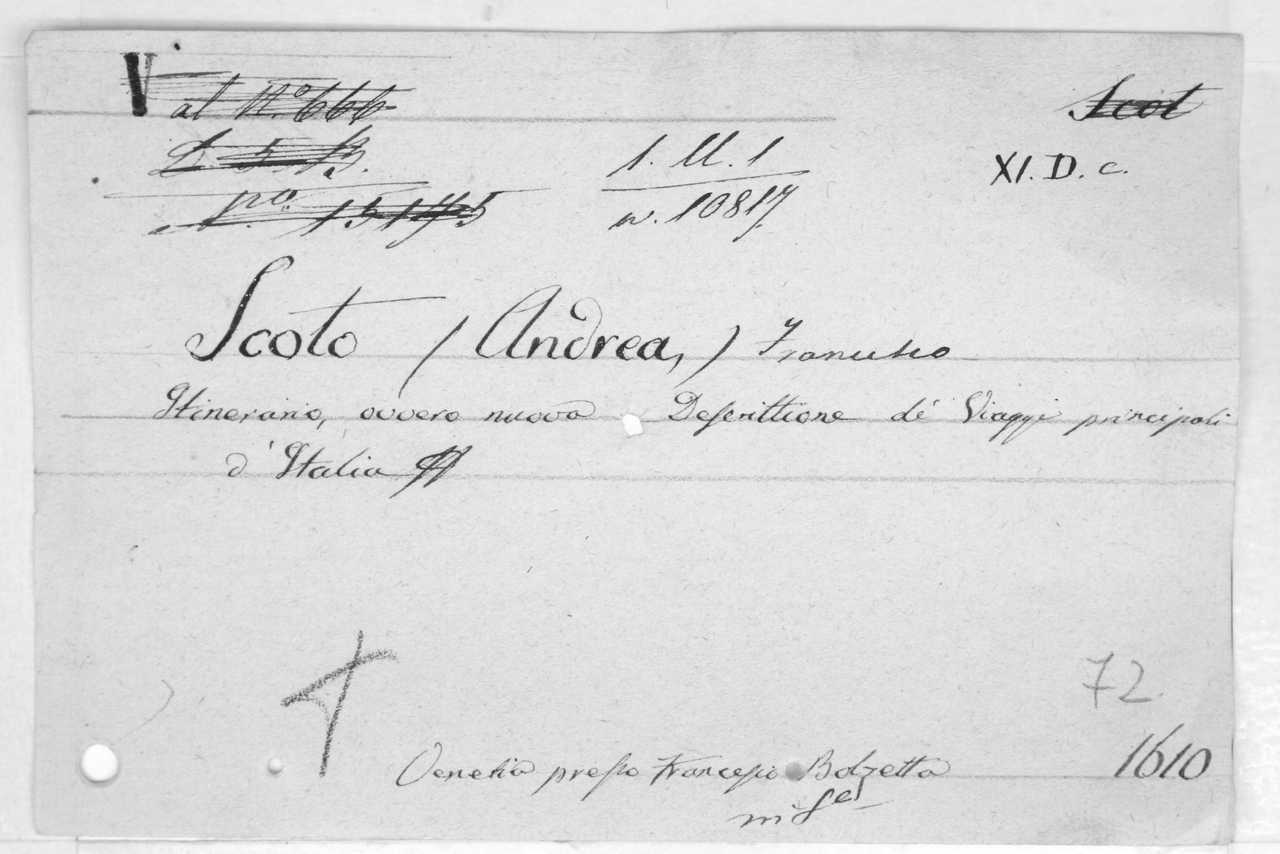 V al No 666
1. U. 1
n. 10817
Scot
XI. D. c.
Scoto (Andrea,) Francesco
Itinerario, ovvero nuova Descrittione de' Viaggi principali
d'Italia
72
Venetia presso Francesco Bolzetta 1610